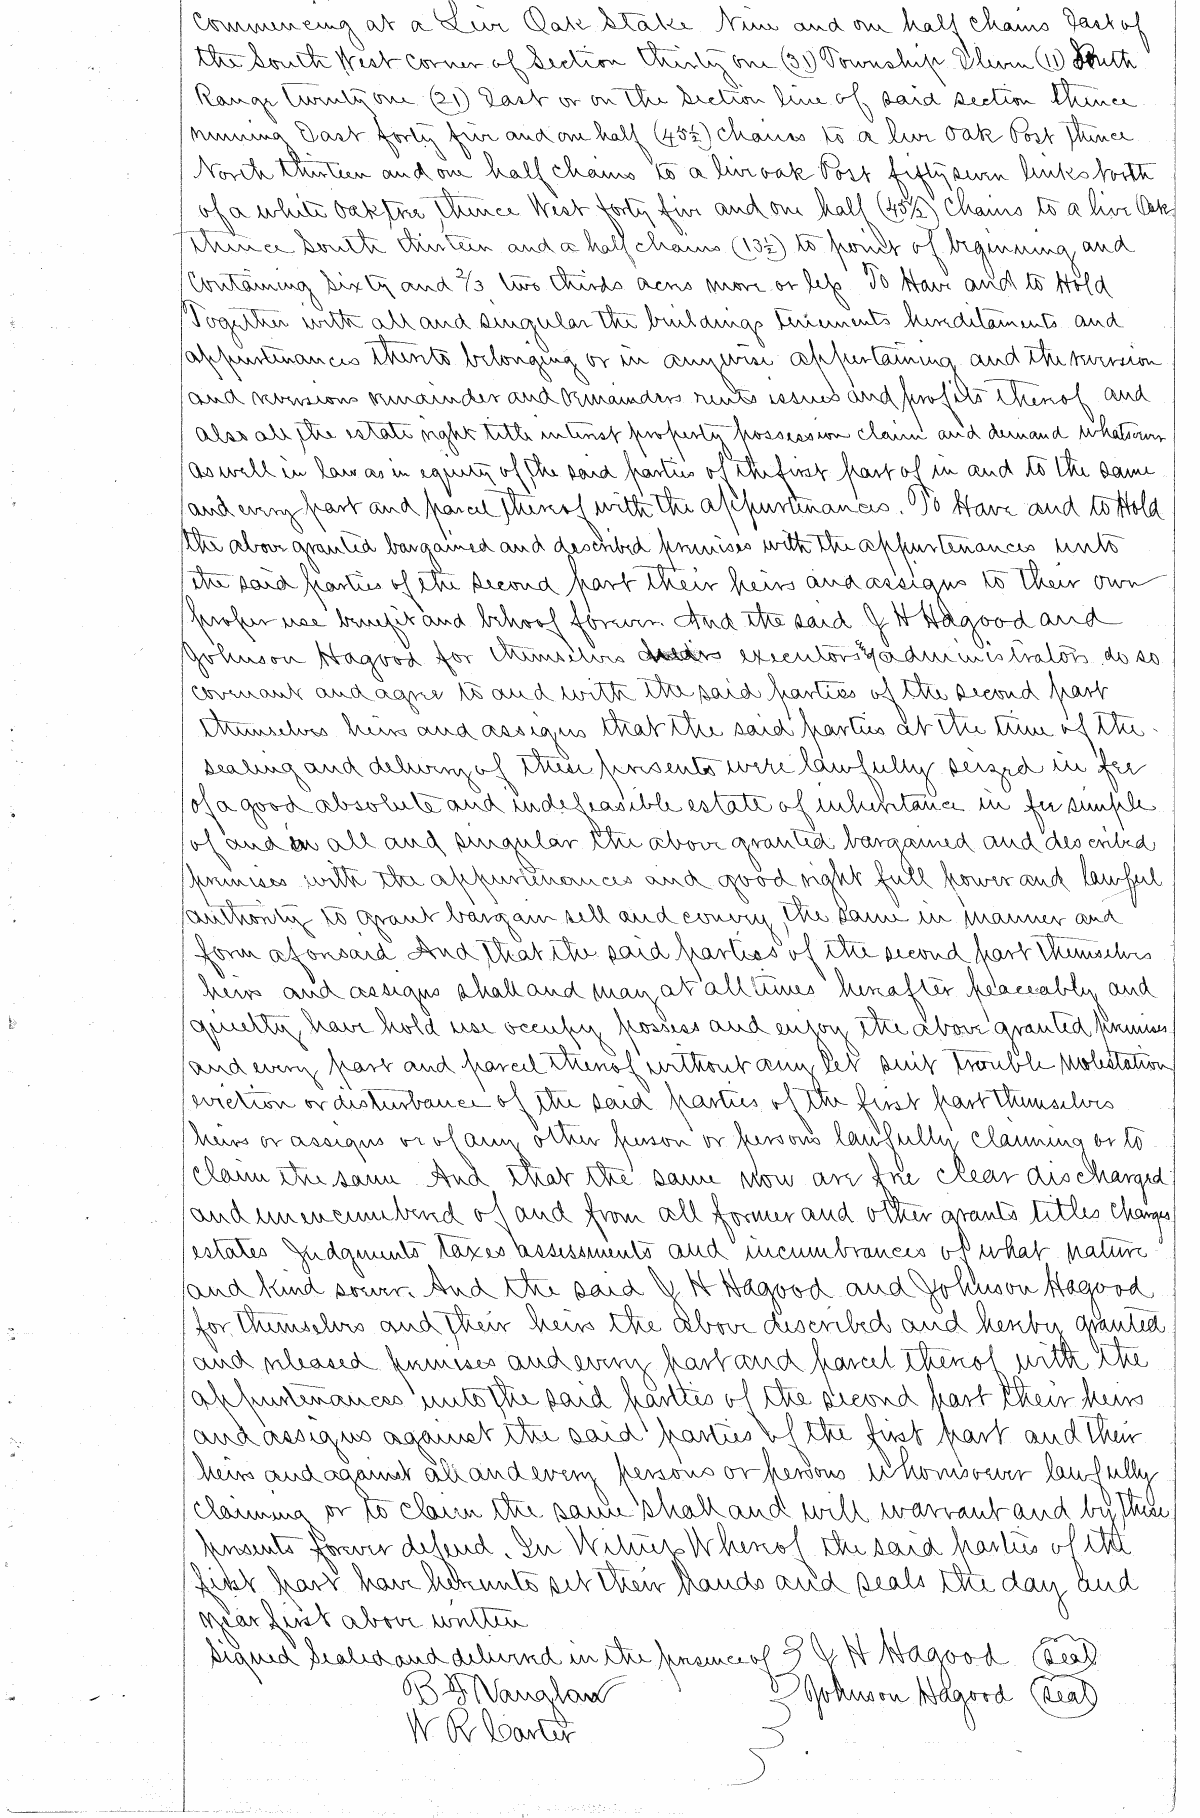 Commencing at a Live Oak Stake Nine and one half chains East of
the South West corner of Section thirty one (31) Township Eleven (11) South
Range twenty one (21) East or on the Section line of said section thence
running East forty five and one half (45½) chains to a live oak Post thence
North thirteen and one half chains to a live oak Post fifty seven links North
of a white oak tree thence West forty five and one half (45½) chains to a live Oak
thence South thirteen and a half chains (13½) to point of beginning and
Containing Sixty and 2/3 two thirds acres more or less To Have and to Hold
Together with all and singular the buildings tenements hereditaments and
appurtenances thereto belonging or in anywise appertaining and the reversion
and reversions remainder and remainders rents issues and profits thereof and
also all the estate right title interest property possession claim and demand whatsoever
as well in law as in equity of the said parties of the first part of in and to the same
and every part and parcel thereof with the appurtenances. To Have and to Hold
the above granted bargained and described premises with the appurtenances unto
the said parties of the second part their heirs and assigns to their own
proper use benefit and behoof forever. And the said J H Hagood and
Johnson Hagood for themselves executors & administrators do so
covenant and agree to and with the said parties of the second part
themselves heirs and assigns that the said parties at the time of the
sealing and delivery of these presents were lawfully seized in fee
of a good absolute and indefeasible estate of inheritance in fee simple
of and in all and singular the above granted bargained and described
premises with the appurtenances and good right full power and lawful
authority to grant bargain sell and convey the same in manner and
form aforesaid And that the said parties of the second part themselves
heirs and assigns shall and may at all times hereafter peaceably and
quietly have hold use occupy possess and enjoy the above granted premises
and every part and parcel thereof without any let suit trouble molestation
eviction or disturbance of the said parties of the first part themselves
heirs or assigns or of any other person or persons lawfully claiming or to
claim the same And that the same now are free clear discharged
and unencumbered of and from all former and other grants titles charges
estates Judgments taxes assessments and incumbrances of what nature
and kind soever. And the said J H Hagood and Johnson Hagood
for themselves and their heirs the above described and hereby granted
and released premises and every part and parcel thereof with the
appurtenances unto the said parties of the second part their heirs
and assigns against the said parties of the first part and their
heirs and against all and every persons or persons whomsoever lawfully
claiming or to claim the same shall and will warrant and by these
presents forever defend. In Witness Whereof the said parties of the
first part have hereunto set their hands and seals the day and
year first above written
Signed Sealed and delivered in the presence of J H Hagood (Seal)
B F Vaughan Johnson Hagood (Seal)
W R Carter